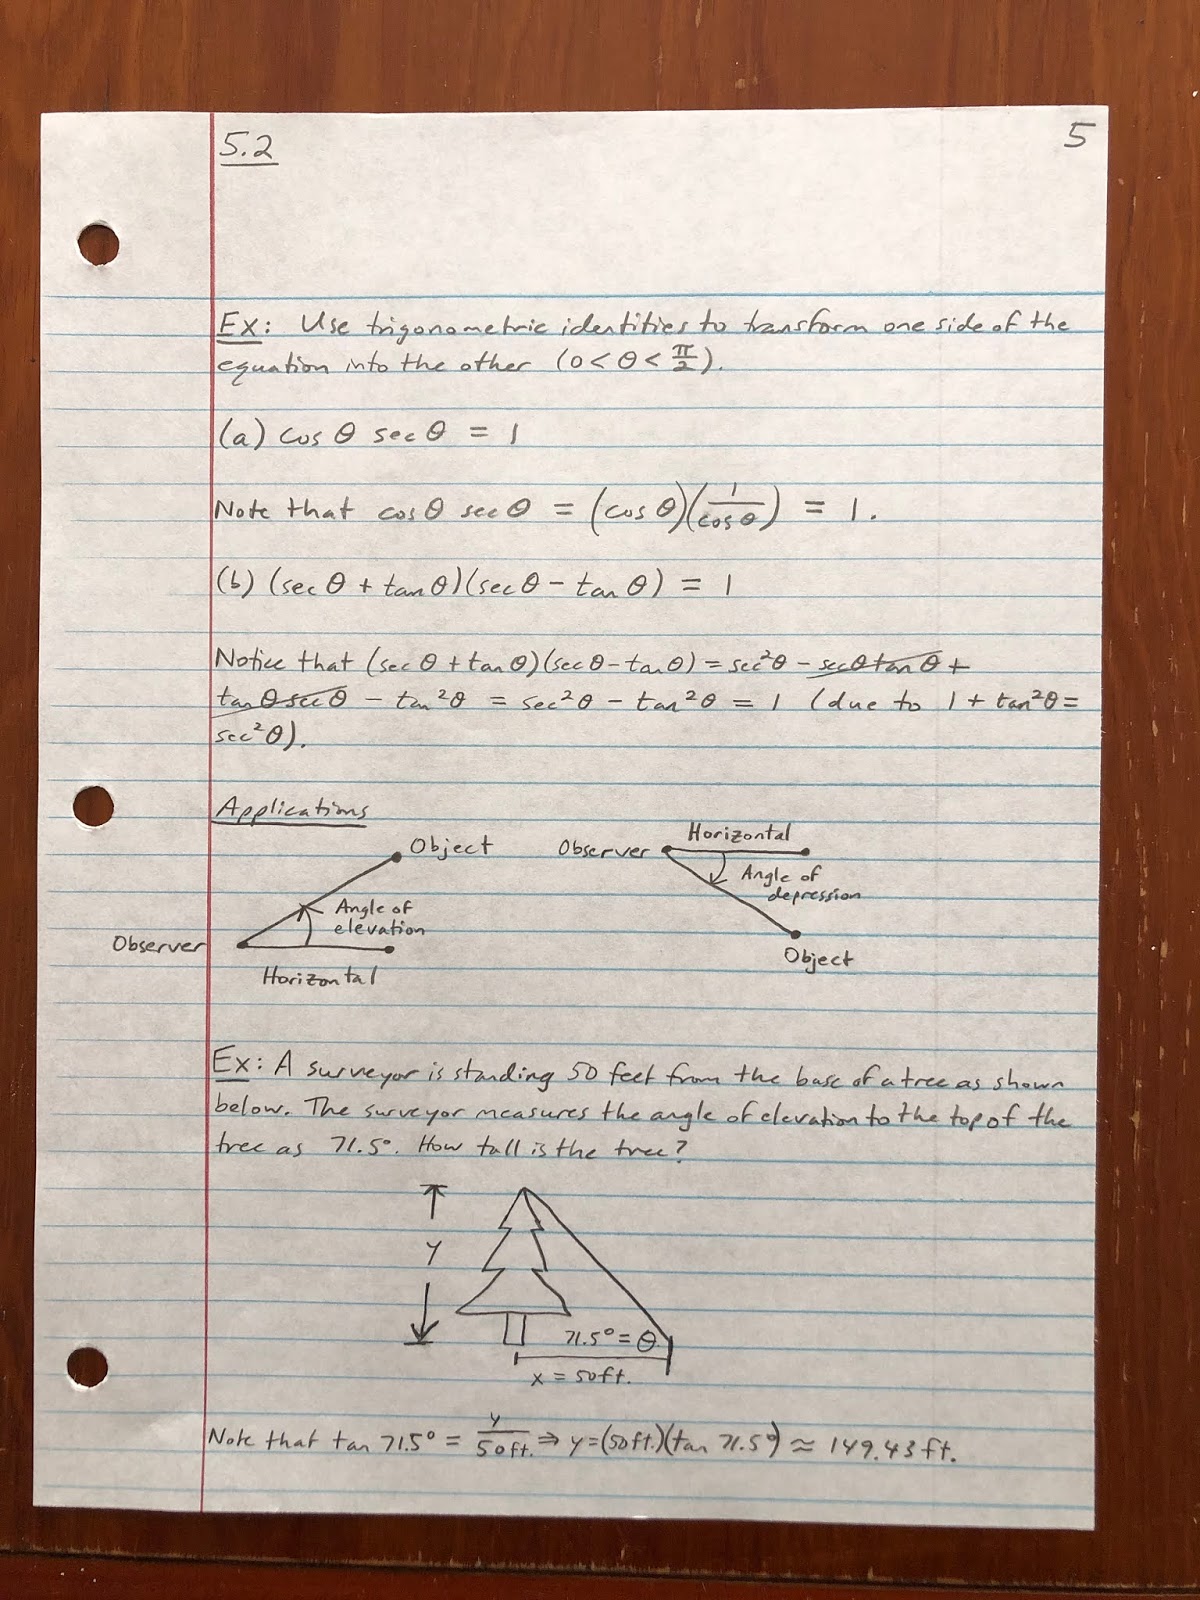 5.2
5
Ex: Use trigonometric identities to transform one side of the
equation into the other (0 < θ < π/2).
(a) cos θ sec θ = 1
Note that cos θ sec θ = (cos θ)(1/cos θ) = 1.
(b) (sec θ + tan θ)(sec θ - tan θ) = 1
Notice that (sec θ + tan θ)(sec θ - tan θ) = sec²θ - sec θ tan θ +
tan θ sec θ - tan²θ = sec²θ - tan²θ = 1 (due to 1 + tan²θ =
sec²θ).
Applications
Object
Angle of
elevation
Observer
Horizontal
Horizontal
Observer
Angle of
depression
Object
Ex: A surveyor is standing 50 feet from the base of a tree as shown
below. The surveyor measures the angle of elevation to the top of the
tree as 71.5°. How tall is the tree?
y
71.5° = θ
x = 50ft.
Note that tan 71.5° = y/50ft. ⇒ y = (50ft.)(tan 71.5°) ≈ 149.43 ft.